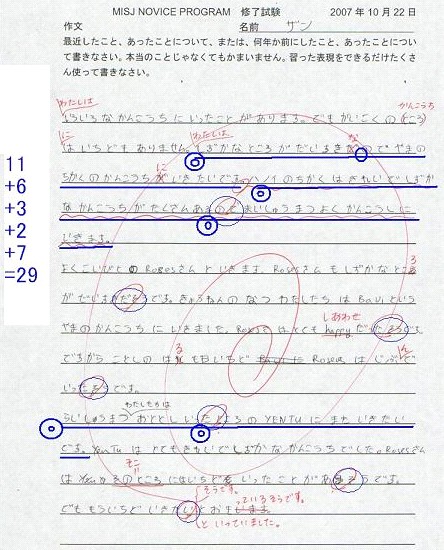 MISJ NOVICE PROGRAM 修了試験 2007 年 10 月 22 日
作文 名前 ザン
最近したこと、あったことについて、または、何年か前にしたこと、あったことについ
て書きなさい。本当のことじゃなくてもかまいません。習った表現をできるだけたくさ
ん使って書きなさい。
わたしは かんこうち
いろいろなかんこうちにいったことがあります。でもかいこくのところ
に わたしは な
はいちどもありません。しずかなところがだいすきなのでやまの
に
ちかくのかんこうちがいきたいです。ハノイのちかくはきれいでしずか
なかんこうちがたくさんあるのでまいしゅうまつよくかんこうに
いきます。
よくこいびとのRosesさんといきます。Rosesさんもしずかなところ
がだいすきだそうです。きょねんのなつわたしたちはBaviという
しあわせ
やまのかんこうちにいきました。Rosesはとてもhappyだったそうです。
る に
ですからことしのはるもういちどRosesはじぶんで
いったそうです。
わたしたちは
らいしゅうまつおととしいったところのYENTUにまたいきたい
です。YenTuはとてもきれいでしずかなかんこうちでした。Rosesさん
そこ
はそのところにはいちどもいったことがあるそうです。
そうです。
ているそうです。
でももういちどいきたいとおもいます
といっていました。
11
+6
+3
+2
+7
=29